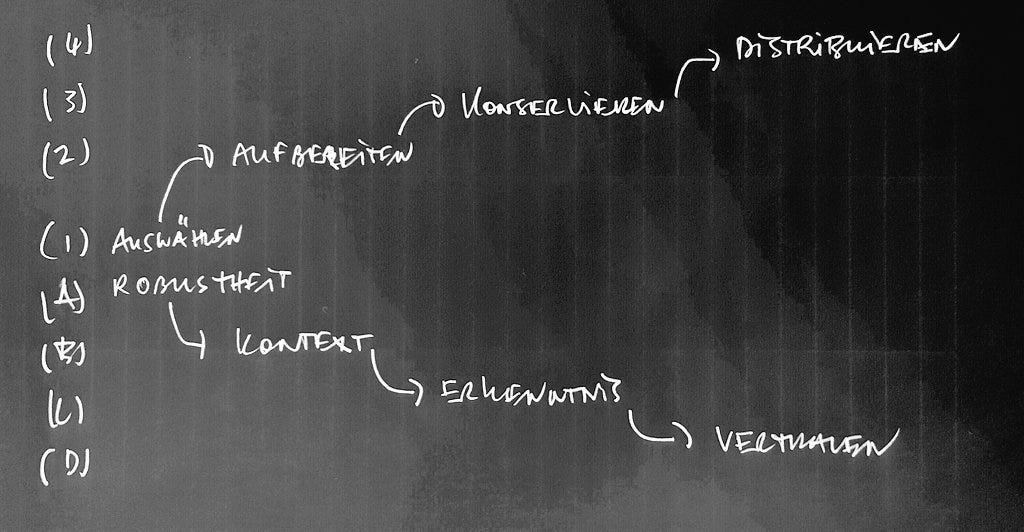 (4) DISTRIBUIEREN
(3) KONSERVIEREN
(2) AUFBEREITEN
(1) AUSWÄHLEN
(A) ROBUSTHEIT
(B) KONTEXT
(C) ERKENNTNIS
(D) VERTRAUEN